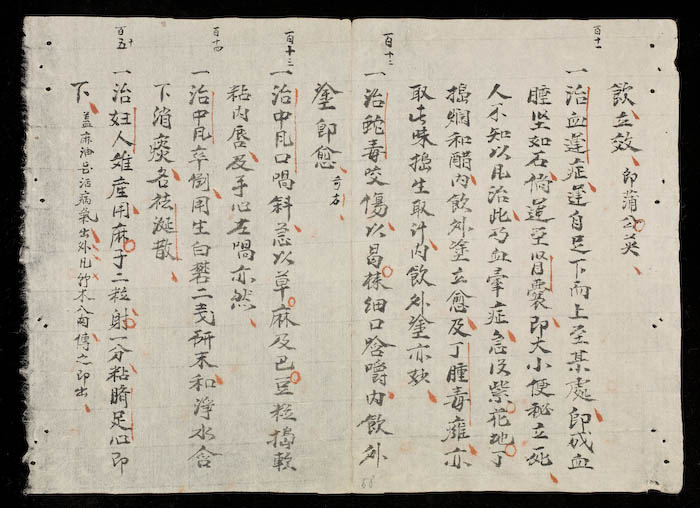 飲立效 即蒲公英
百十一
一治血蓬症蓬自足下而上至某處即成血
腫堅如石倘蓬至腎囊即大小便秘立死
人不知以凡治此乃血暈症急沒紫花地丁
搗爛和醋内飲外塗立愈及丁腫毒癰亦
取此味搗生取汁内飲外塗亦效
百十二
一治蛇毒咬傷以曷抹細口唅嚼内飲外
塗即愈
百十三
一治中風口喎斜急以草麻及巴豆粒搗軟
粘内唇及手心左喎亦然
百十四
一治中風卒倒用生白礬二戔研末和淨水含
下消痰各祛涎散
百十五
一治妇人难産用麻子二粒射一分粘臍足心即
下 盖麻油呂活病氣出外凡竹木入肉傅之即出
66